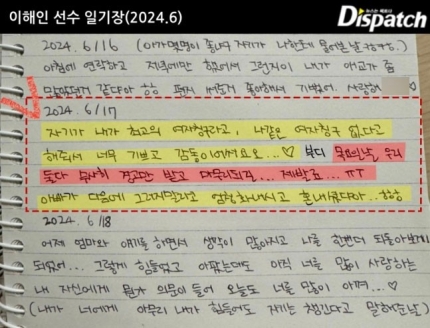 이해인 선수 일기장(2024.6)
뉴스는 팩트다
Dispatch
2024. 6/16
아침에 연락하고 저녁에만 했어서 그런지 내가 애교가 좀
많았던거 같다아 하하 편지 써준거 좋아해서 기뻤어. 사랑해
2024. 6/17
자기가 내가 최고의 여자친구라고, 나같은 여자친구 없다고
해줘서 너무 기쁘고 감동이어서요오...♡ 부디 목요일날 우리
둘다 무사히 경고만 받고 마무리되길... 제발료... ㅠㅠ
아빠가 다음에 그러지말라고 엄청 화내시고 혼내셨다아.. 하하
2024. 6/18
어제 엄마와 얘기를 하면서 생각이 많아지고 나를 한번더 되돌아보게
되었어... 그렇게 힘들었고 아팠는데도 아직 너를 많이 사랑하는
내 자신에게 의문이 들어 오늘도 너를 많이 아껴...♡
(내가 너에게 아무리 내가 힘들어도 자기는 챙긴다고 말해준날)